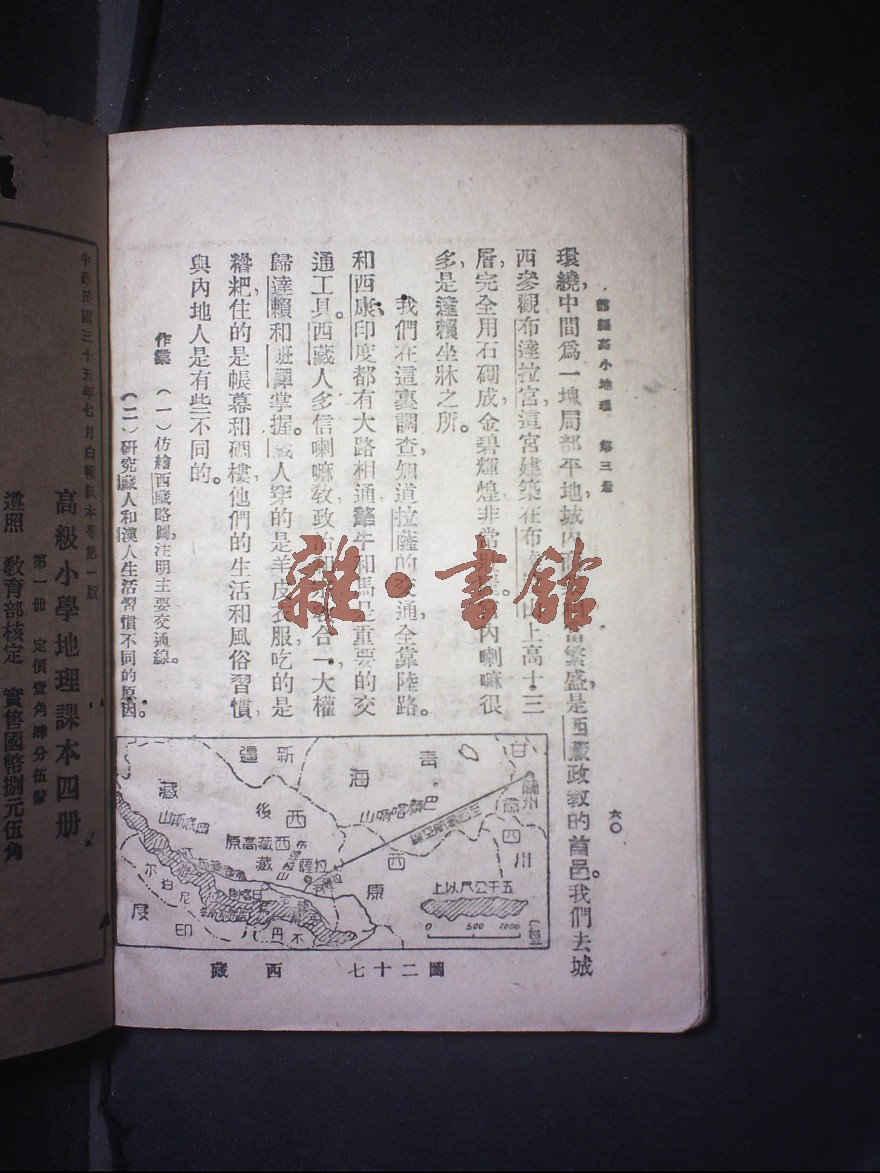 部編高小地理 第三册
六〇
環繞,中間爲一塊局部平地,城內商繁盛,是西藏政教的首邑。我們去城
西參觀布達拉宮,這宮建築在布山上,高十三
層,完全用石砌成,金碧輝煌,非常內喇嘛很
多,是達賴坐牀之所。
我們在這裏調查,知道拉薩的交通全靠陸路。
和西康、印度都有大路相通,犛牛和馬是重要的交
通工具。西藏人多信喇嘛教,政治合一,大權
歸達賴和班禪掌握。藏人穿的是羊皮衣服,吃的是
糌粑,住的是帳幕和碉樓,他們的生活和風俗習慣,
與內地人是有些不同的。
作業 (一)仿繪西藏略圖,注明主要交通線。
(二)研究藏人和漢人生活習慣不同的原因。
新疆
青海
甘肅
蘭州
四川
巴顏喀喇山
西康
西藏
後藏
西藏高原
拉薩
岡底斯山
尼泊爾
不丹
印度
五千公尺以上
0 500 1000
圖二十七 西藏
雜·書館
中華民國三十五年七月白報紙本卷第一版
高級小學地理課本四册
第一册 定價壹角肆分伍釐
遵照 教育部核定 實售國幣捌元伍角